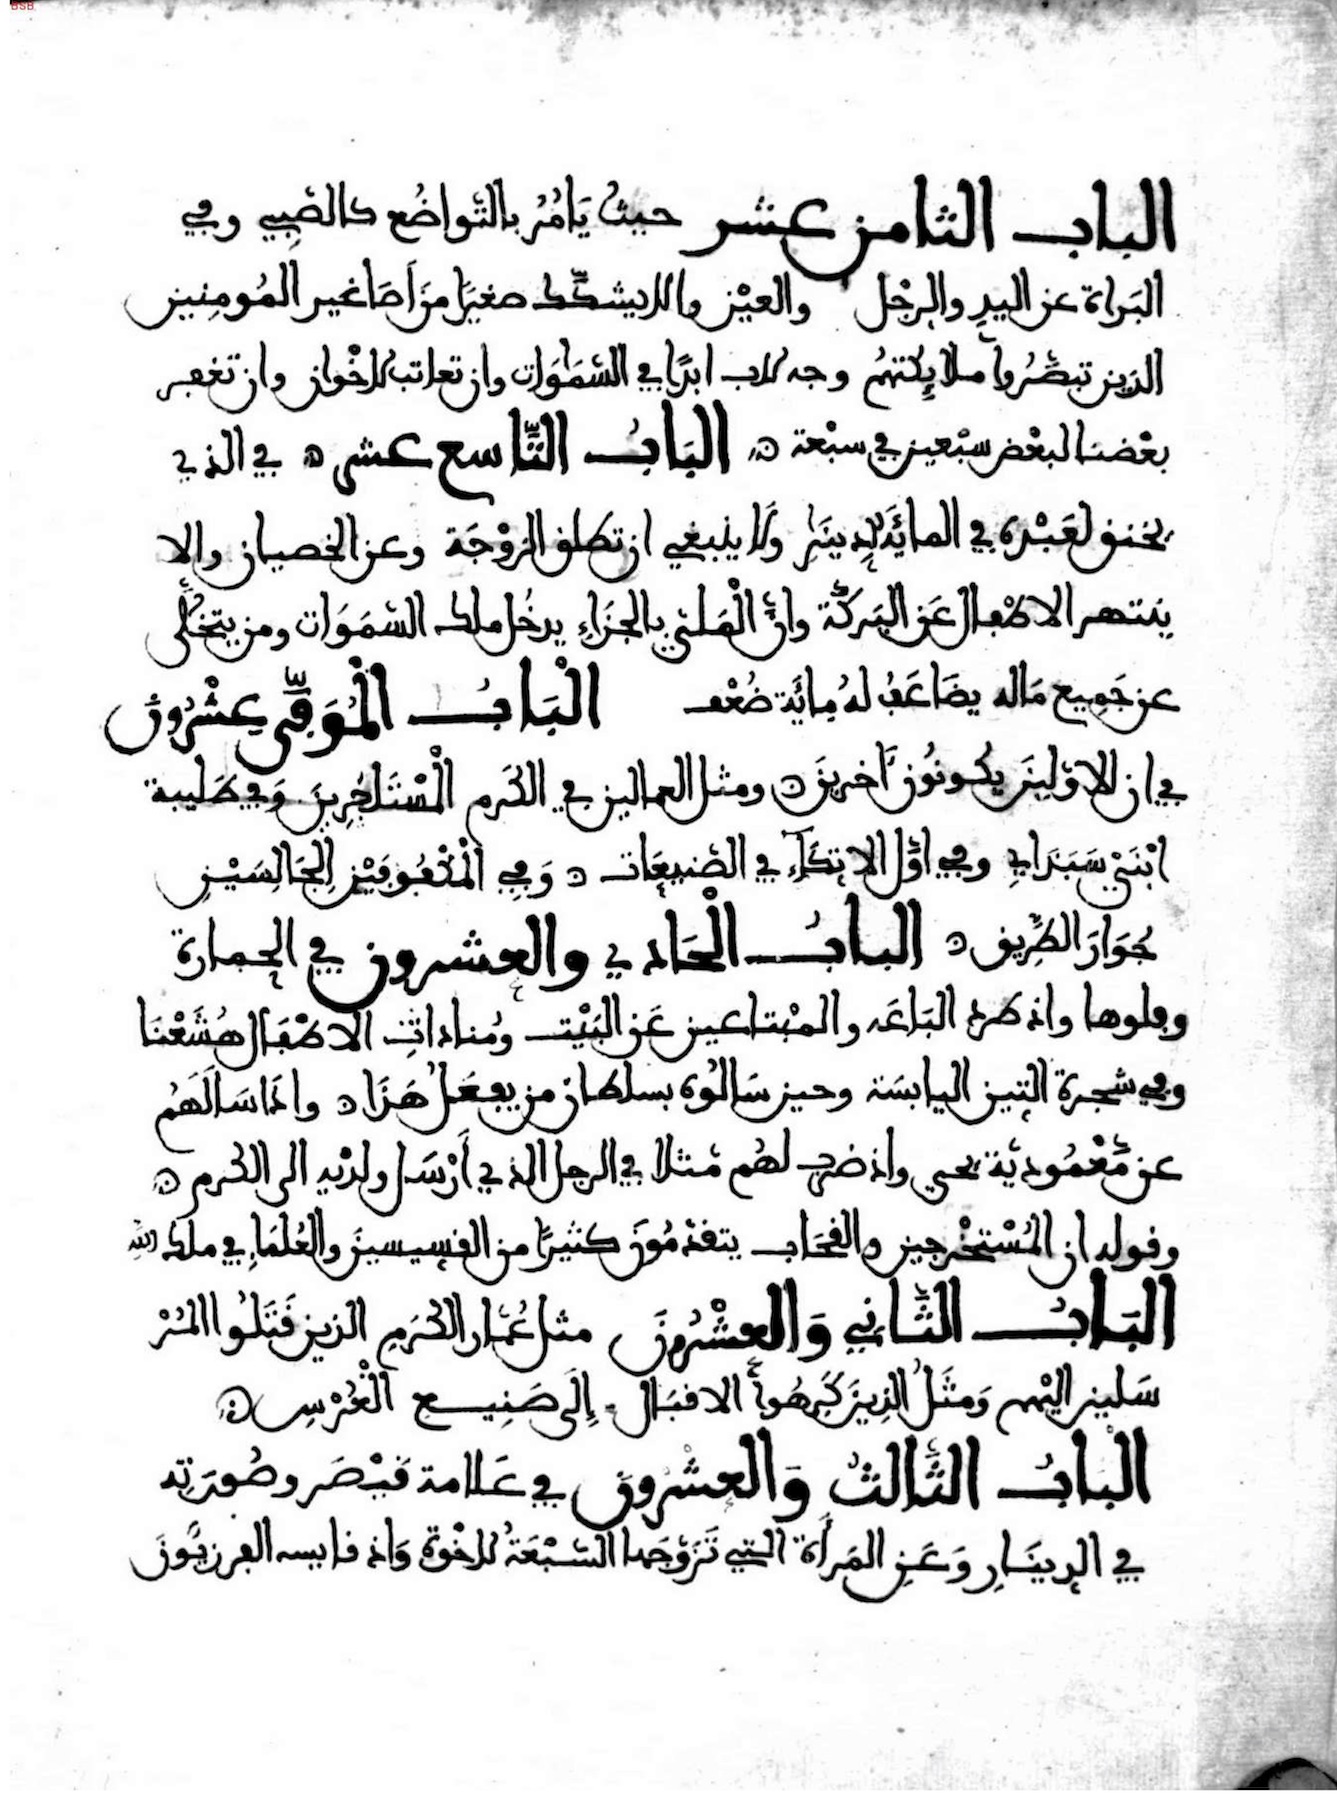 BSB
الباب الثامن عشر حيث يَامُرُ بالتَّواضُع كالصَّبِي وفي
البَراة عن اليدِ والرِجْل والعيْن والا يشكّك صغيرًا من أصَاغير المُومِنين
الذين تبصَّرُوا ملايكتهُم وجه الاب ابدًا في السَّمَوَات وان تعاتب الاخْوان وان تغفر
بعْضنا لبعْض سبْعين في سبْعة البَابُ التَّاسع عشر في الذي
يخنق لعَبْده في المائَة دِينَارِ ولَا ينبغي ان تطلق الزوْجَة وعن الخصيان والا
ينتهر الاطْفال عَن البَركَة وانَّ الْمَلئ بالجزَاءِ يدخُل ملك السَّمَوَات ومن يتخَلَّى
عن جَمِيع مَاله يضَاعَفُ لهُ مِائَة ضُعْف الْبَابُ الْمُوَفِّي عِشْرُون
في ان الاوّلينَ يكونُون أخرينَ ومثل العمالين في الكَرم الْمُسْتَاجِرِينَ وَفي طَليبة
ابْنَيْ سَبَدَاي وفي اوَّل الاتكَآء في الصَّنيعَات وَفي الْمَكْفُوفَيْن الجَالِسَيْنِ
جُوَارَ الطَّرِيق البابُ الْحَادي والعشرون في الحمارة
وفلوها واذ طرد البَاعَه والمبْتاعين عَن البَيْت ومُناداتِ الاطْفَال هُشَعْنَا
وفي شجرة التين اليابسَة وحين سَالُوهُ بسلطان من يفعَلُ هَذَا واذَا سَالَهُم
عن مَعْمُوديَّة يحيى واذ ضرب لهُم مَثلا في الرجل الذي أَرْسَل ولديْه الى الكرم
وقوله ان المُسْتخْرجين والقحَاب يتقدَّمُونَ كثيرًا من القسيسينَ والعُلمَا في ملك الله
البَابُ الثَّاني وَالعشْرُونَ مثل عُمَّار الكرَم الذين قَتَلُوا المُرْ
سَلين اليْهم وَمثَلُ الذِينَ كَرِهُوا الاقبَال إلَى صَنِيع الْعُرْسِ
البَابُ الثَّالثُ وَالعشْرُونَ في عَلامة قيْصَر وصُورَتِه
في الدينَارِ وَعَنِ المَرأة التي تَزَوَّجَها السَّبْعَةُ الاخْوة وَاذ قايسه الفرزيُّونَ